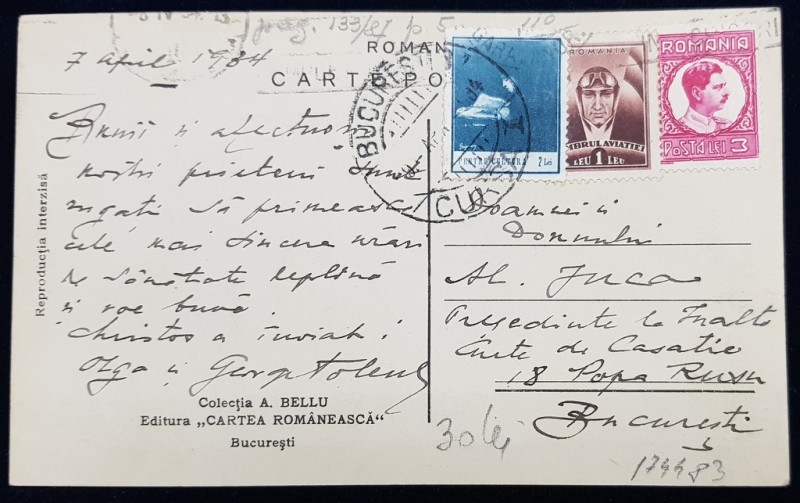 preg. 133/87 p 5
110
7 april 1934
ROMAN
CARTEPO
BUCUREȘTI
I
PENTRU CULTURA 2 Lei
ROMANIA
TIMBRUL AVIAȚIEI
LEU 1 LEU
ROMANIA
POSTA LEI 3
Reproducția interzisă
Bunii și afectuoși
noștri prieteni sunt
rugați să primească
cele mai sincere urări
de sănătate deplină
și voe bună.
Christos a înviat!
Olga și George
Colecția A. BELLU
Editura „CARTEA ROMÂNEASCĂ"
București
Doamnei și
Domnului
Al. Juca
Președinte la Înalta
Curte de Casație
18 Popa Rusu
București
30 lei
174483